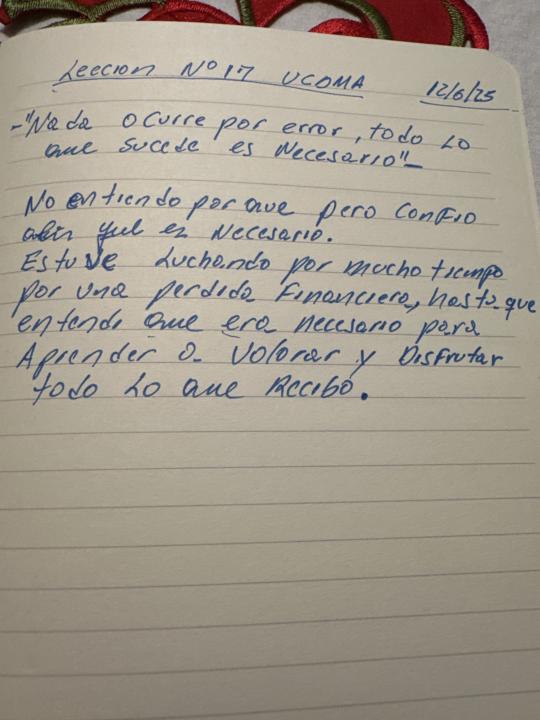 Leccion Nº 17 UCDMA 12/6/25
-"Nada ocurre por error, todo lo
que sucede es Necesario"-
No entiendo por que pero confio
que es Necesario.
Estuve Luchando por mucho tiempo
por una perdida Financiera, hasta que
entendi que era necesario para
Aprender a valorar y Disfrutar
todo lo que Recibo.